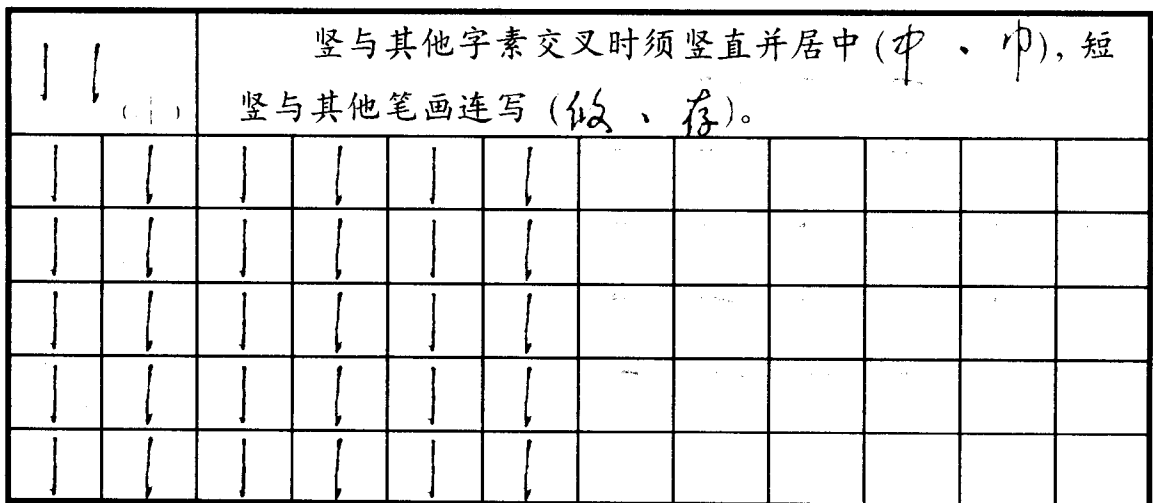 竖与其他字素交叉时须竖直并居中(中、巾),短
竖与其他笔画连写(做、存)。